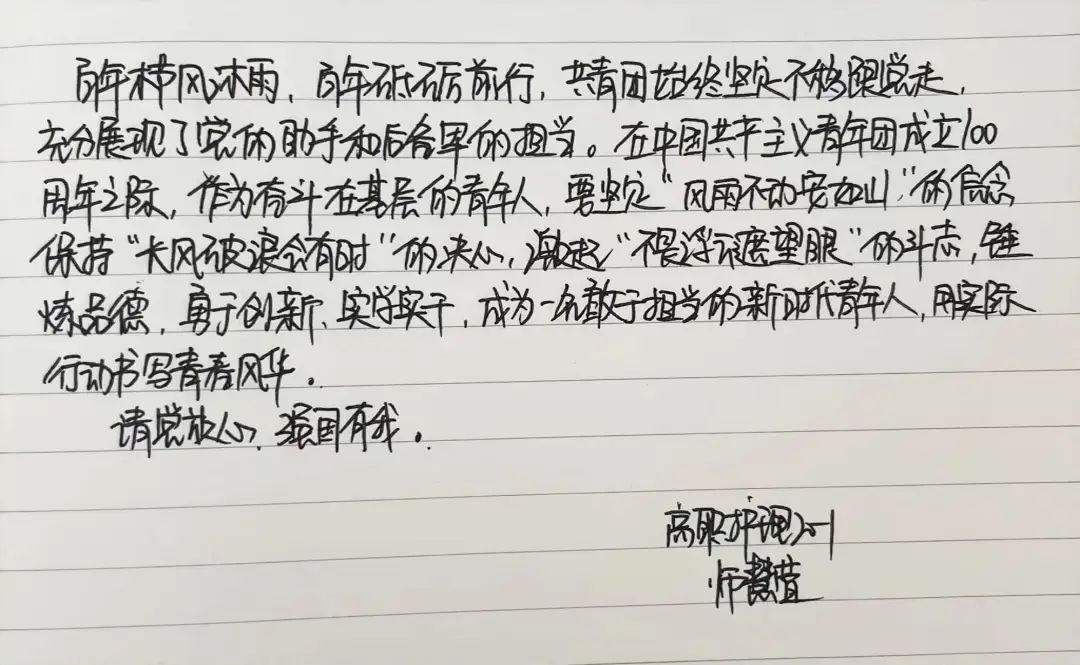 百年栉风沐雨，百年砥砺前行，共青团始终坚定不移跟党走，
充分展现了党的助手和后备军的担当。在中国共产主义青年团成立100
周年之际，作为奋斗在基层的青年人，要坚定“风雨不动安如山”的信念
保持“长风破浪会有时”的决心，激起“不畏浮云遮望眼”的斗志，锤
炼品德，勇于创新、实学实干，成为一名敢于担当的新时代青年人，用实际
行动书写青春风华。
请党放心，强国有我。
高职护理20-1
师慧萱